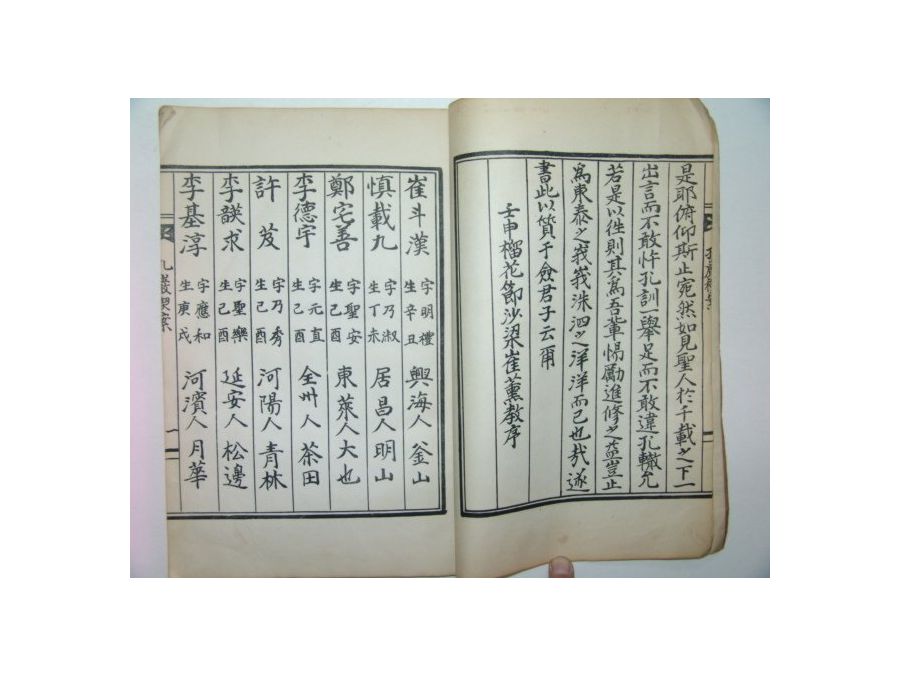 是耶俯仰斯止宛然如見聖人於千載之下一
出言而不敢忤孔訓一擧足而不敢違孔轍允
若是以徃則其爲吾輩惕勵進修之益豈止
爲東泰之峩峩洙泗之洋洋而已也哉遂
書此以質于僉君子云爾
壬申榴花節沙梁崔薰敎序
崔斗漢 字明禮 生辛丑 興海人 釜山
愼載九 字乃淑 生丁未 居昌人 明山
鄭宅善 字聖安 生己酉 東萊人 大也
李德宇 字元直 生己酉 全州人 茶田
許芨 字乃秀 生己酉 河陽人 青林
李鍈求 字聖樂 生己酉 延安人 松邊
李基淳 字應和 生庚戌 河濱人 月華
孔巖稧案 一